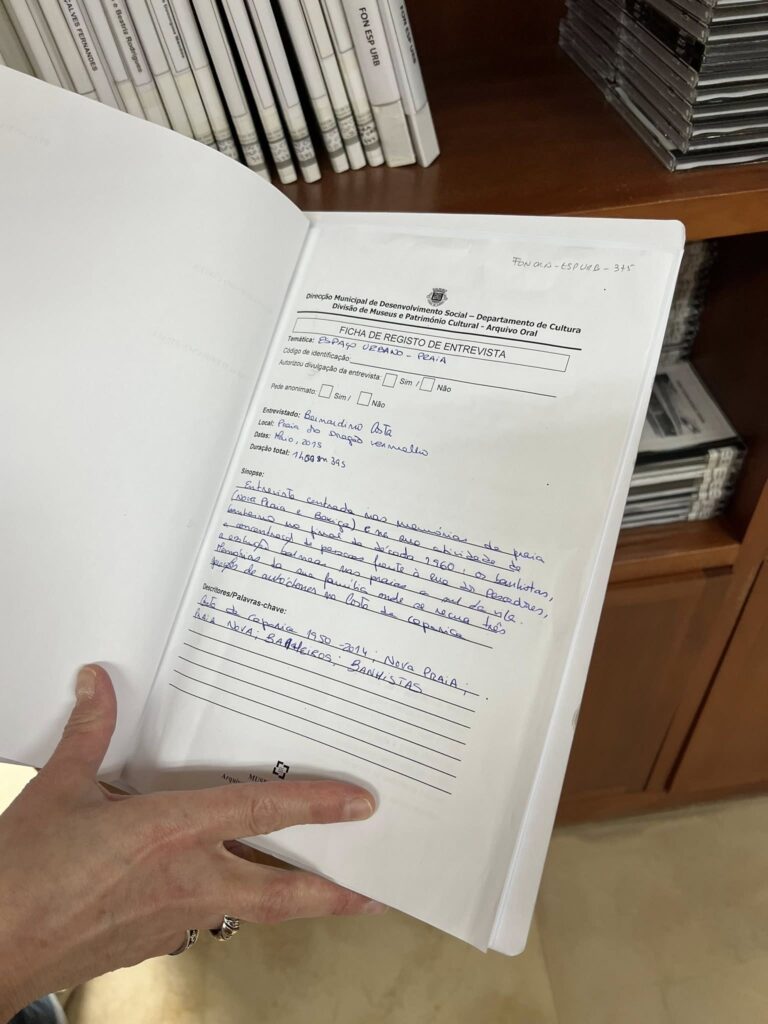 GONÇALVES FERNANDES
e Beatriz Rodrigues
FON ESP URB
FON ESP URB
FON ORA - ESP URB - 375
Direcção Municipal de Desenvolvimento Social – Departamento de Cultura
Divisão de Museus e Património Cultural - Arquivo Oral
FICHA DE REGISTO DE ENTREVISTA
Temática: ESPAÇO URBANO - PRAIA
Código de identificação:
Autorizou divulgação da entrevista: Sim / Não
Pede anonimato: Sim / Não
Entrevistado: Bernardino Costa
Local: Praia do Dragão Vermelho
Datas: Maio, 2015
Duração total: 39s
Sinopse:
Entrevista centrada nas memórias da praia
(Nova Praia e ) e na sua atividade de
banheiro no final da década 1960; os banhistas,
a concentração de pessoas frente à rua dos pescadores,
a evolução balnear nas praias a sul da vila.
Memórias da sua família onde se reuna três
gerações de autóctones na Costa da Caparica
Descritores/Palavras-chave:
Costa da Caparica 1950-2014; Nova PRAIA;
PRAIA NOVA; BANHEIROS; BANHISTAS
MUS
Arquiv